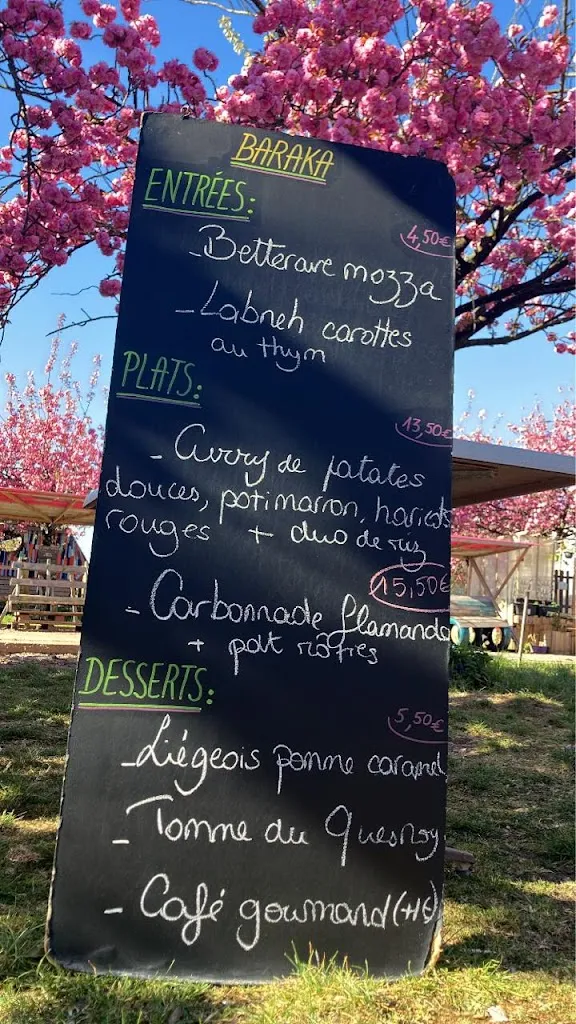 BARAKA
ENTRÉES:
4,50€
- Betterave mozza
- Labneh carottes
au thym
PLATS:
13,50€
- Curry de patates
douces, potimarron, haricots
rouges + duo de riz
15,50€
- Carbonnade flamande
+ pdt rôties
DESSERTS:
5,50€
- Liégeois pomme caramel
- Tomme du Quesnoy
- Café gourmand (+1€)